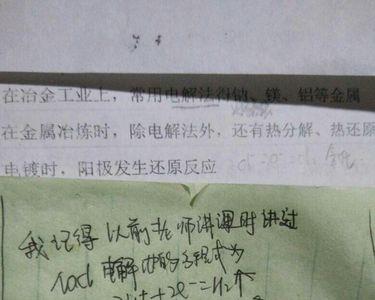 在冶金工业上，常用电解法得钠、镁、铝等金属
在金属冶炼时，除电解法外，还有热分解、热还原
电镀时，阳极发生还原反应
我记得以前老师讲课时讲过
Nacl 电解时的方程式为
2H⁺+2e⁻=H₂↑